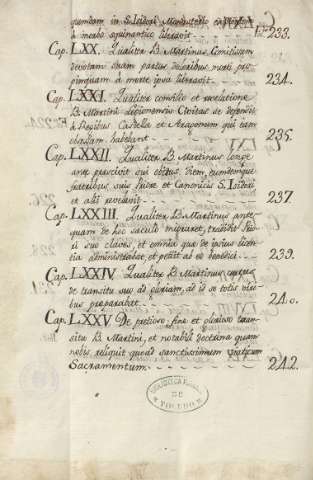 quemdam in S. Isidori Monasterio
à morbo squinantiæ liberavit - - - - - - - 233.
Cap. LXX. Qualiter B. Martinus Comitissam
devotam suam partus doloribus morti pro-
pinquam à morte ipsa liberavit. - - - - 234.
Cap. LXXI. Qualiter consilio et revelatione
B. Martini Legionensis Civitas se defensit
à Regibus Castellæ et Aragonum qui eam
habebant - - - - - - - - 235.
Cap. LXXII. Qualiter B. Martinus longe
ante præscivit sui obitus diem,
fratribus suis fuisse et Canonicis S. Isidori
et alii - - - - - - - - 237
Cap. LXXIII. Qualiter B. Martinus ante
quam de hoc sæculo migraret, tradidit Prio-
ri suo claves, et omnia quæ de ipsius licen-
tia administrabat, et petiit ab eo benedici - - 239.
Cap. LXXIV. Qualiter B. Martinus certus
de transitu suo ad gloriam, ad id se totis viri-
bus præparabat - - - - - - - 240.
Cap. LXXV. De pretioso fine et glorioso tran-
situ B. Martini, et notabili doctrina quam
nobis reliquit quoad sanctissimum
Sacramentum - - - - - - - 242.
DE
TOLEDO